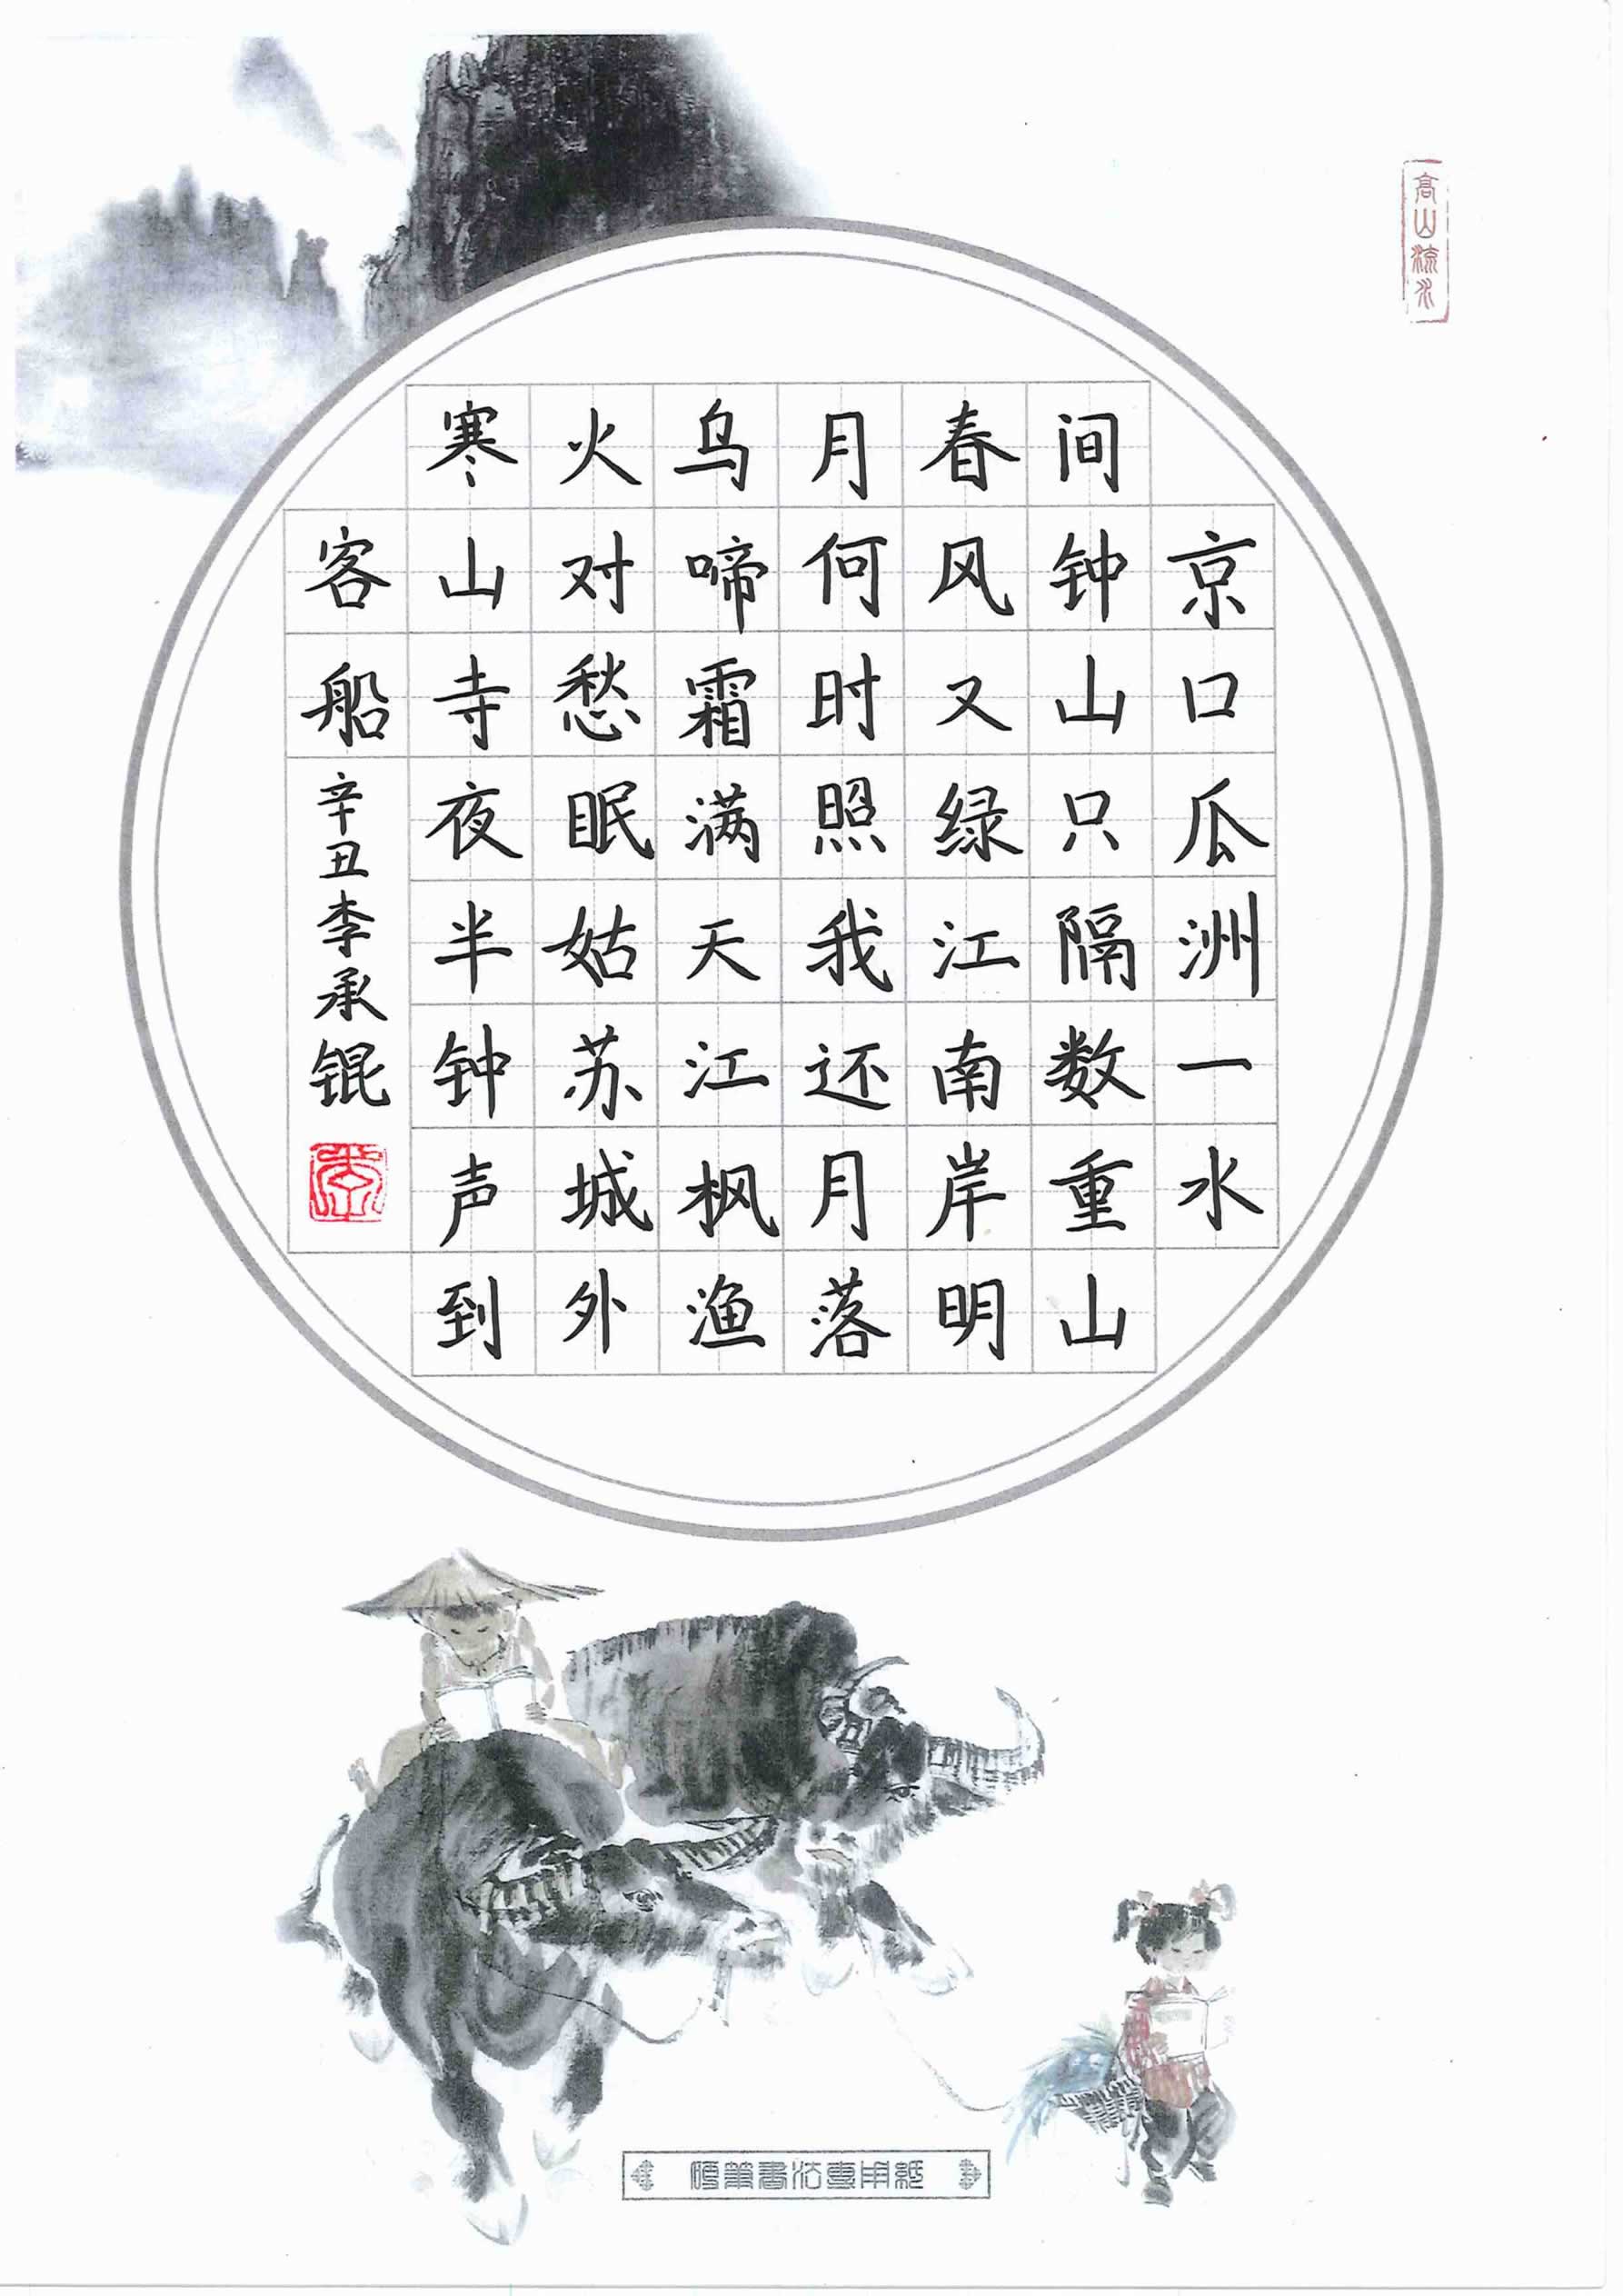 高山流水
京口瓜洲一水
间钟山只隔数重山
春风又绿江南岸明
月何时照我还月落
乌啼霜满天江枫渔
火对愁眠姑苏城外
寒山寺夜半钟声到
客船
辛丑李承锟
硬筆書法專用紙